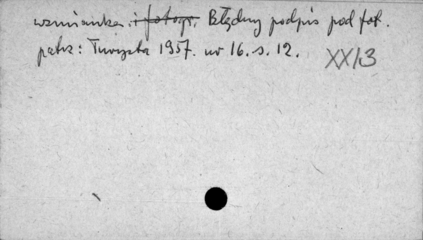 wzmianka i fotogr. Błędny podpis pod fot.
patrz: Turysta 1957. nr 16. s. 12.
XX/3